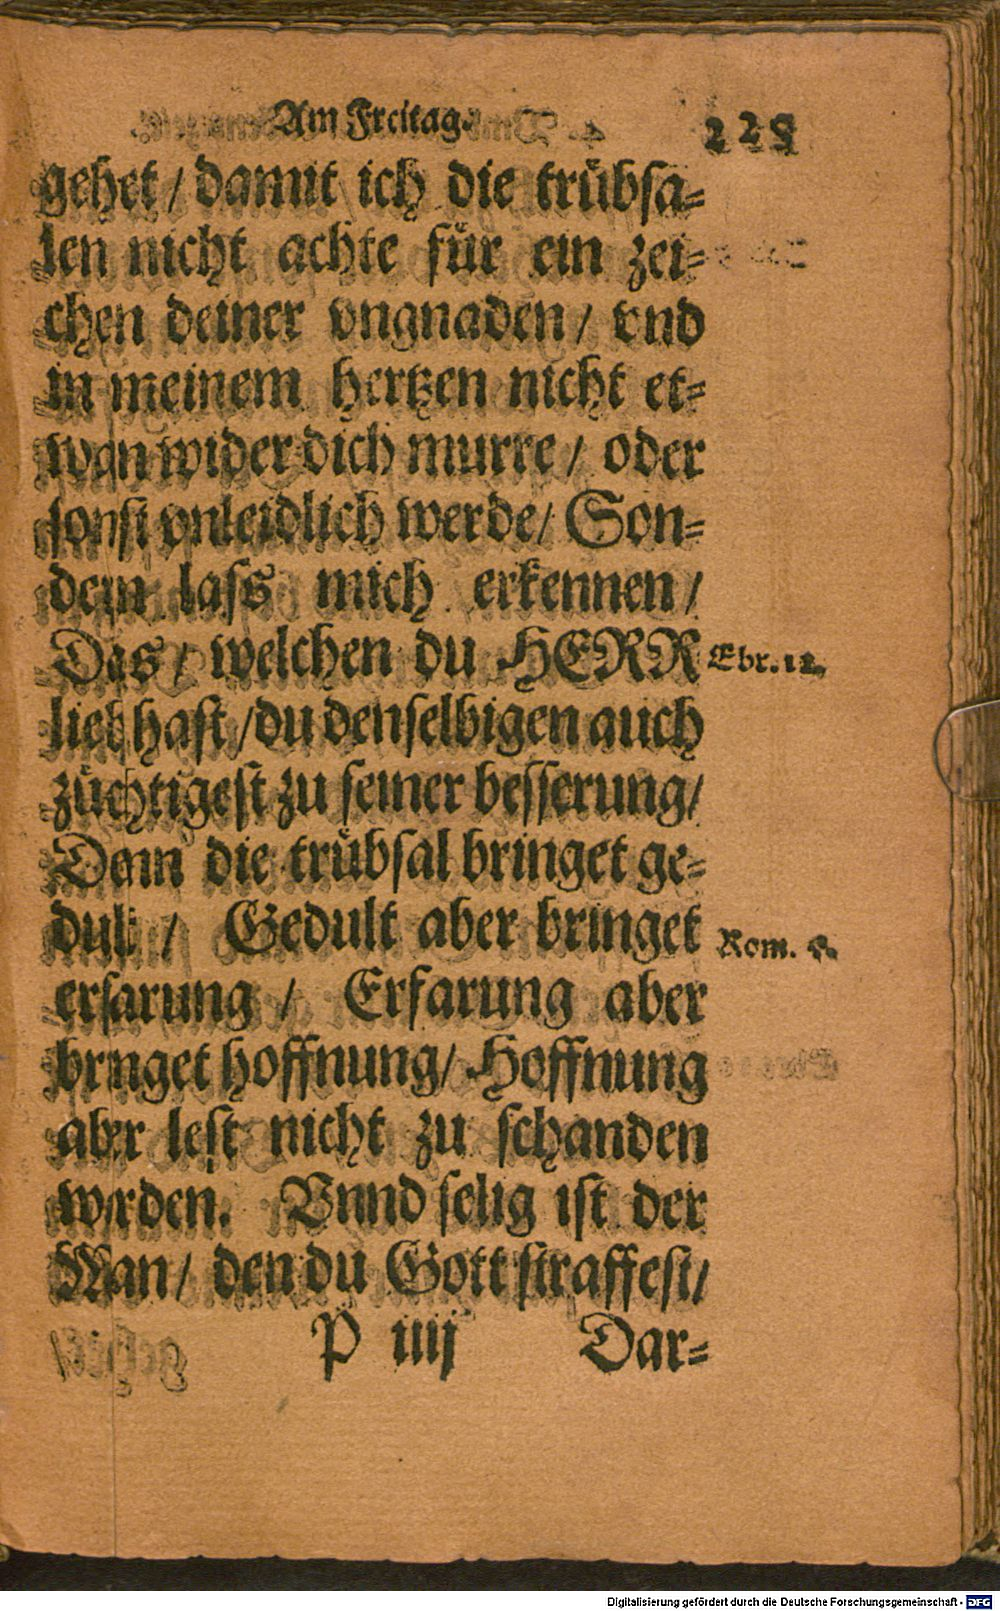 Am Freitag. 225
gehet / damit ich die trübsa=
len nicht achte für ein zei=
chen deiner vngnaden / vnd
in meinem hertzen nicht et=
wan wider dich murre / oder
sonst vnleidlich werde / Son=
dern lass mich erkennen /
Das / welchen du HERR
lieb hast / du denselbigen auch
züchtigest zu seiner besserung /
Denn die trübsal bringet ge=
dult / Gedult aber bringet
erfarung / Erfarung aber
bringet hoffnung / Hoffnung
aber lest nicht zu schanden
werden. Vnnd selig ist der
Man / den du Gott straffest /
P iiij Dar=
Ebr. 12.
Rom. 5.
Digitalisierung gefördert durch die Deutsche Forschungsgemeinschaft - DFG